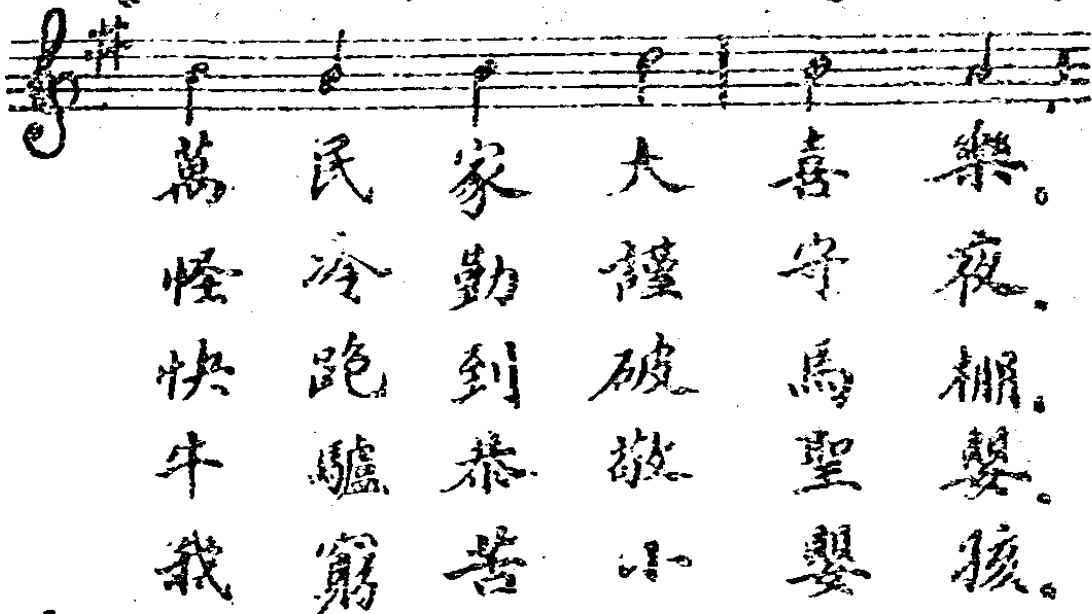 萬民家大喜樂。
怪冷勤謹守夜。
快跑到破馬棚。
牛驢恭敬聖嬰。
我窮苦小嬰孩。